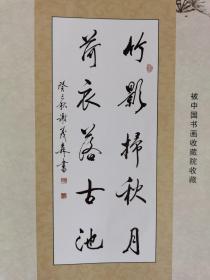 竹影掃秋月
荷衣落古池
癸巳秋谢茂森書
被中国书画收藏院收藏